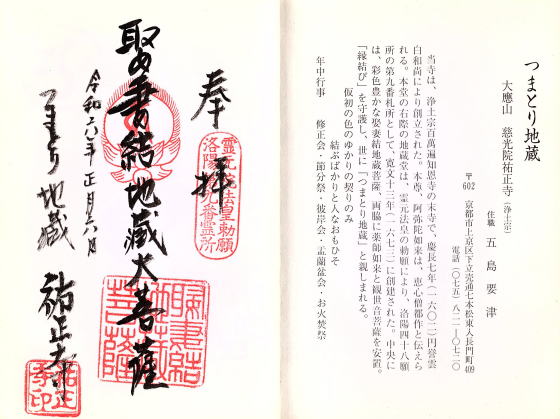 つまとり地蔵
大應山 慈光院祐正寺(浄土宗)
住職 五島要津
〒602 京都市上京区下立売通七本松東入長門町409
電話(〇七五)八一一-〇七二〇
当寺は、浄土宗百萬遍知恩寺の末寺で、慶長七年(一六〇二)円誉雲
白和尚により創立された。本尊、阿弥陀如来は、恵心僧都作と伝えら
れる。本堂の右際の地蔵堂は、霊元法皇の勅願により、洛陽四十八願
所の第九番札所として、寛文十三年(一六七三)に創建された。中央に
は、彩色豊かな娶妻結地蔵菩薩、両脇に薬師如来と観世音菩薩を安置。
「縁結び」を守護し、世に「つまとり地蔵」と親しまれる。
仮初の色のゆかりの契りのみ
結ぶばかりと人なおもひそ
年中行事 修正会・節分祭・彼岸会・盂蘭盆会・お火焚祭
奉拝
霊元法皇勅願
洛陽 九番霊所
娶妻結地蔵大菩薩
令和六年正月六日
つまとり地蔵
祐正寺